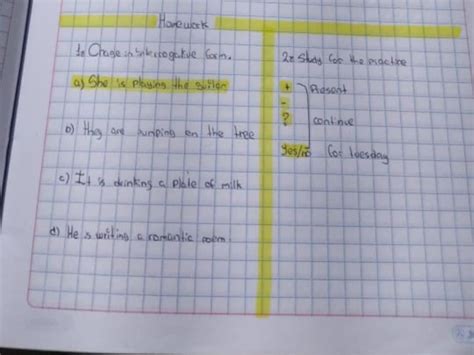 Homework
1= Chage in interrogative form.
a) She is playing the guitar
b) they are jumping on the tree
c) It is drinking a plate of milk
d) He is writing a romantic poem.
2= Study for the practice
+ Present
-
? continue
yes/no for tuesday